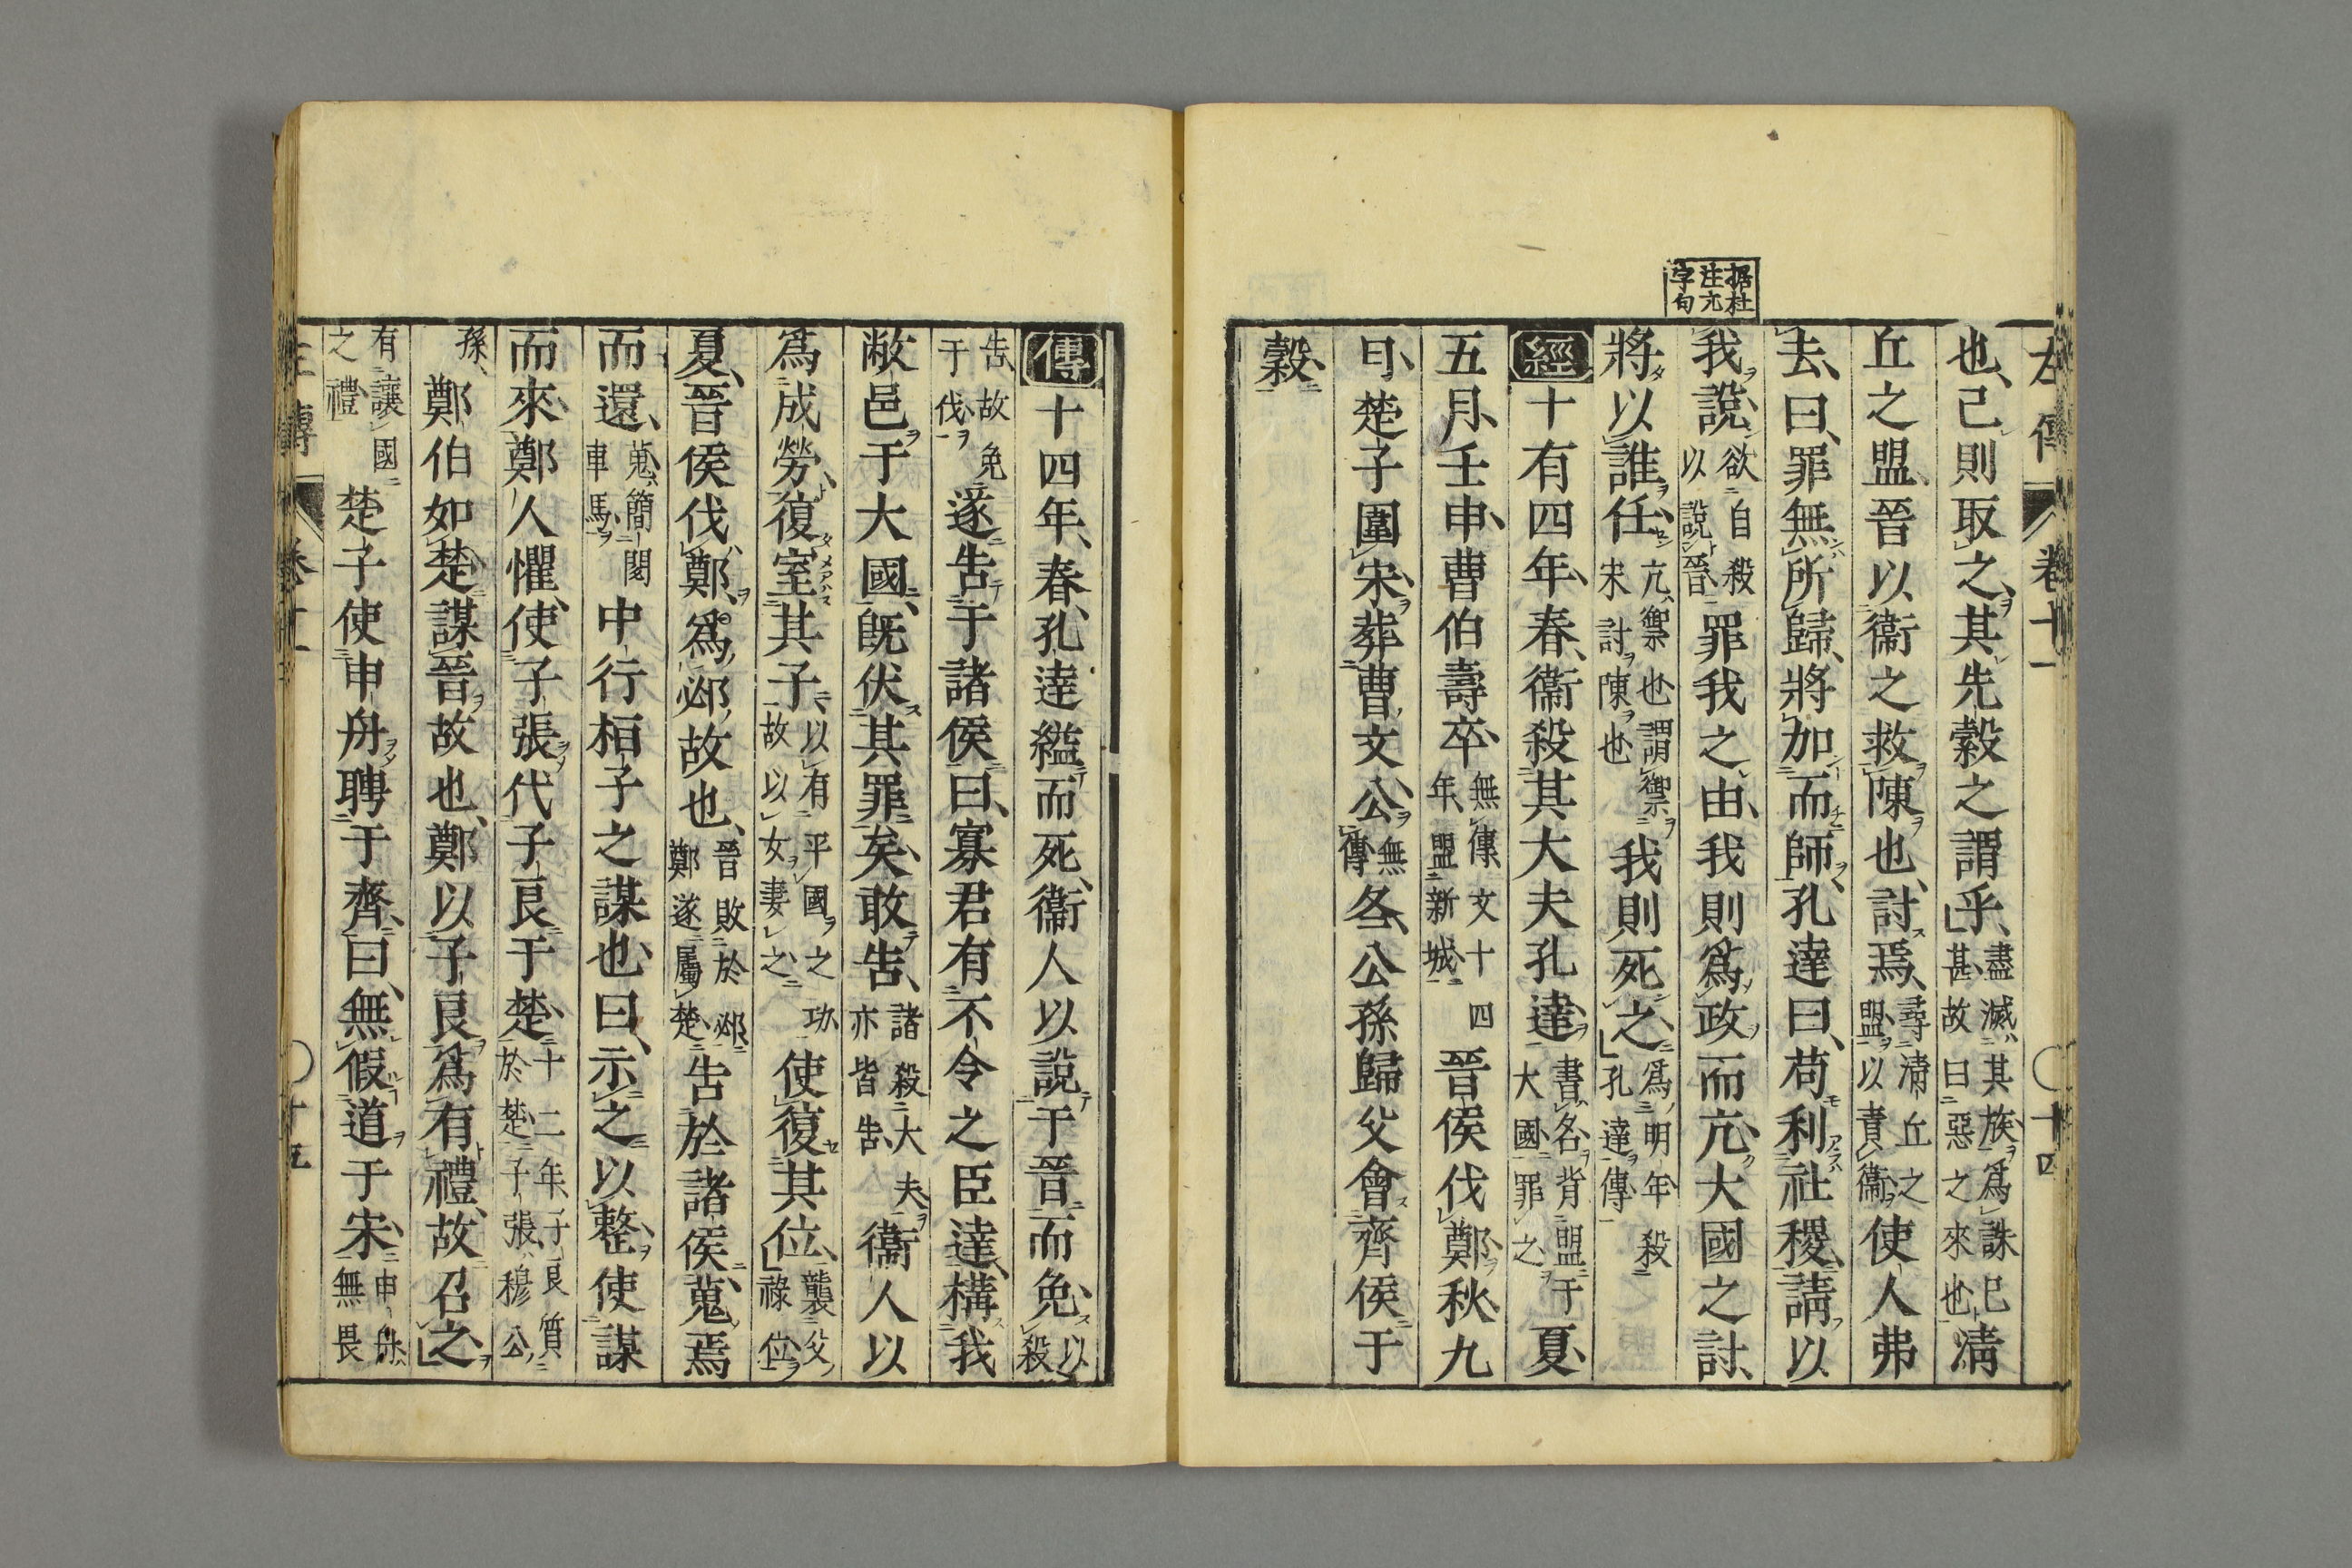 左傳 卷十一 〇十四
據杜注亢字句
也、己則取之、其先縠之謂乎、盡滅其族爲誅已甚故曰惡之來也淸
丘之盟、晉以衞之救陳也、討焉、尋淸丘之盟以責衞使人弗
去、曰、罪無所歸、將加而師、孔達曰、苟利社稷、請以
我說、欲自殺以說晉罪我之由、我則爲政而亢大國之討、
將以誰任、亢禦也謂禦宋討陳也我則死之、爲明年殺孔達傳
經十有四年、春、衞殺其大夫孔達、書名背盟于大國罪之夏、
五月、壬申、曹伯壽卒、無傳文十四年、盟新城晉侯伐鄭、秋、九
月、楚子圍宋、葬曹文公、無傳冬、公孫歸父會齊侯于
穀、
傳十四年、春、孔達縊而死、衞人以說于晉而免、以殺
告、故免于伐遂告于諸侯曰、寡君有不令之臣達、構我
敝邑于大國、旣伏其罪矣、敢告、諸殺大夫亦皆告衞人以
爲成勞、復室其子、以有平國之功故以女妻之使復其位、襲父祿位
夏、晉侯伐鄭、爲邲故也、晉敗於邲鄭遂屬楚告於諸侯、蒐焉
而還、蒐簡閱車馬中行桓子之謀也、曰、示之以整、使謀
而來、鄭人懼、使子張代子良于楚、十二年、子良質於楚子張、穆公
孫、鄭伯如楚、謀晉故也、鄭以子良爲有禮、故召之、
有讓國之禮楚子使申舟聘于齊、曰、無假道于宋、申舟無畏
左傳 卷十一 〇十五